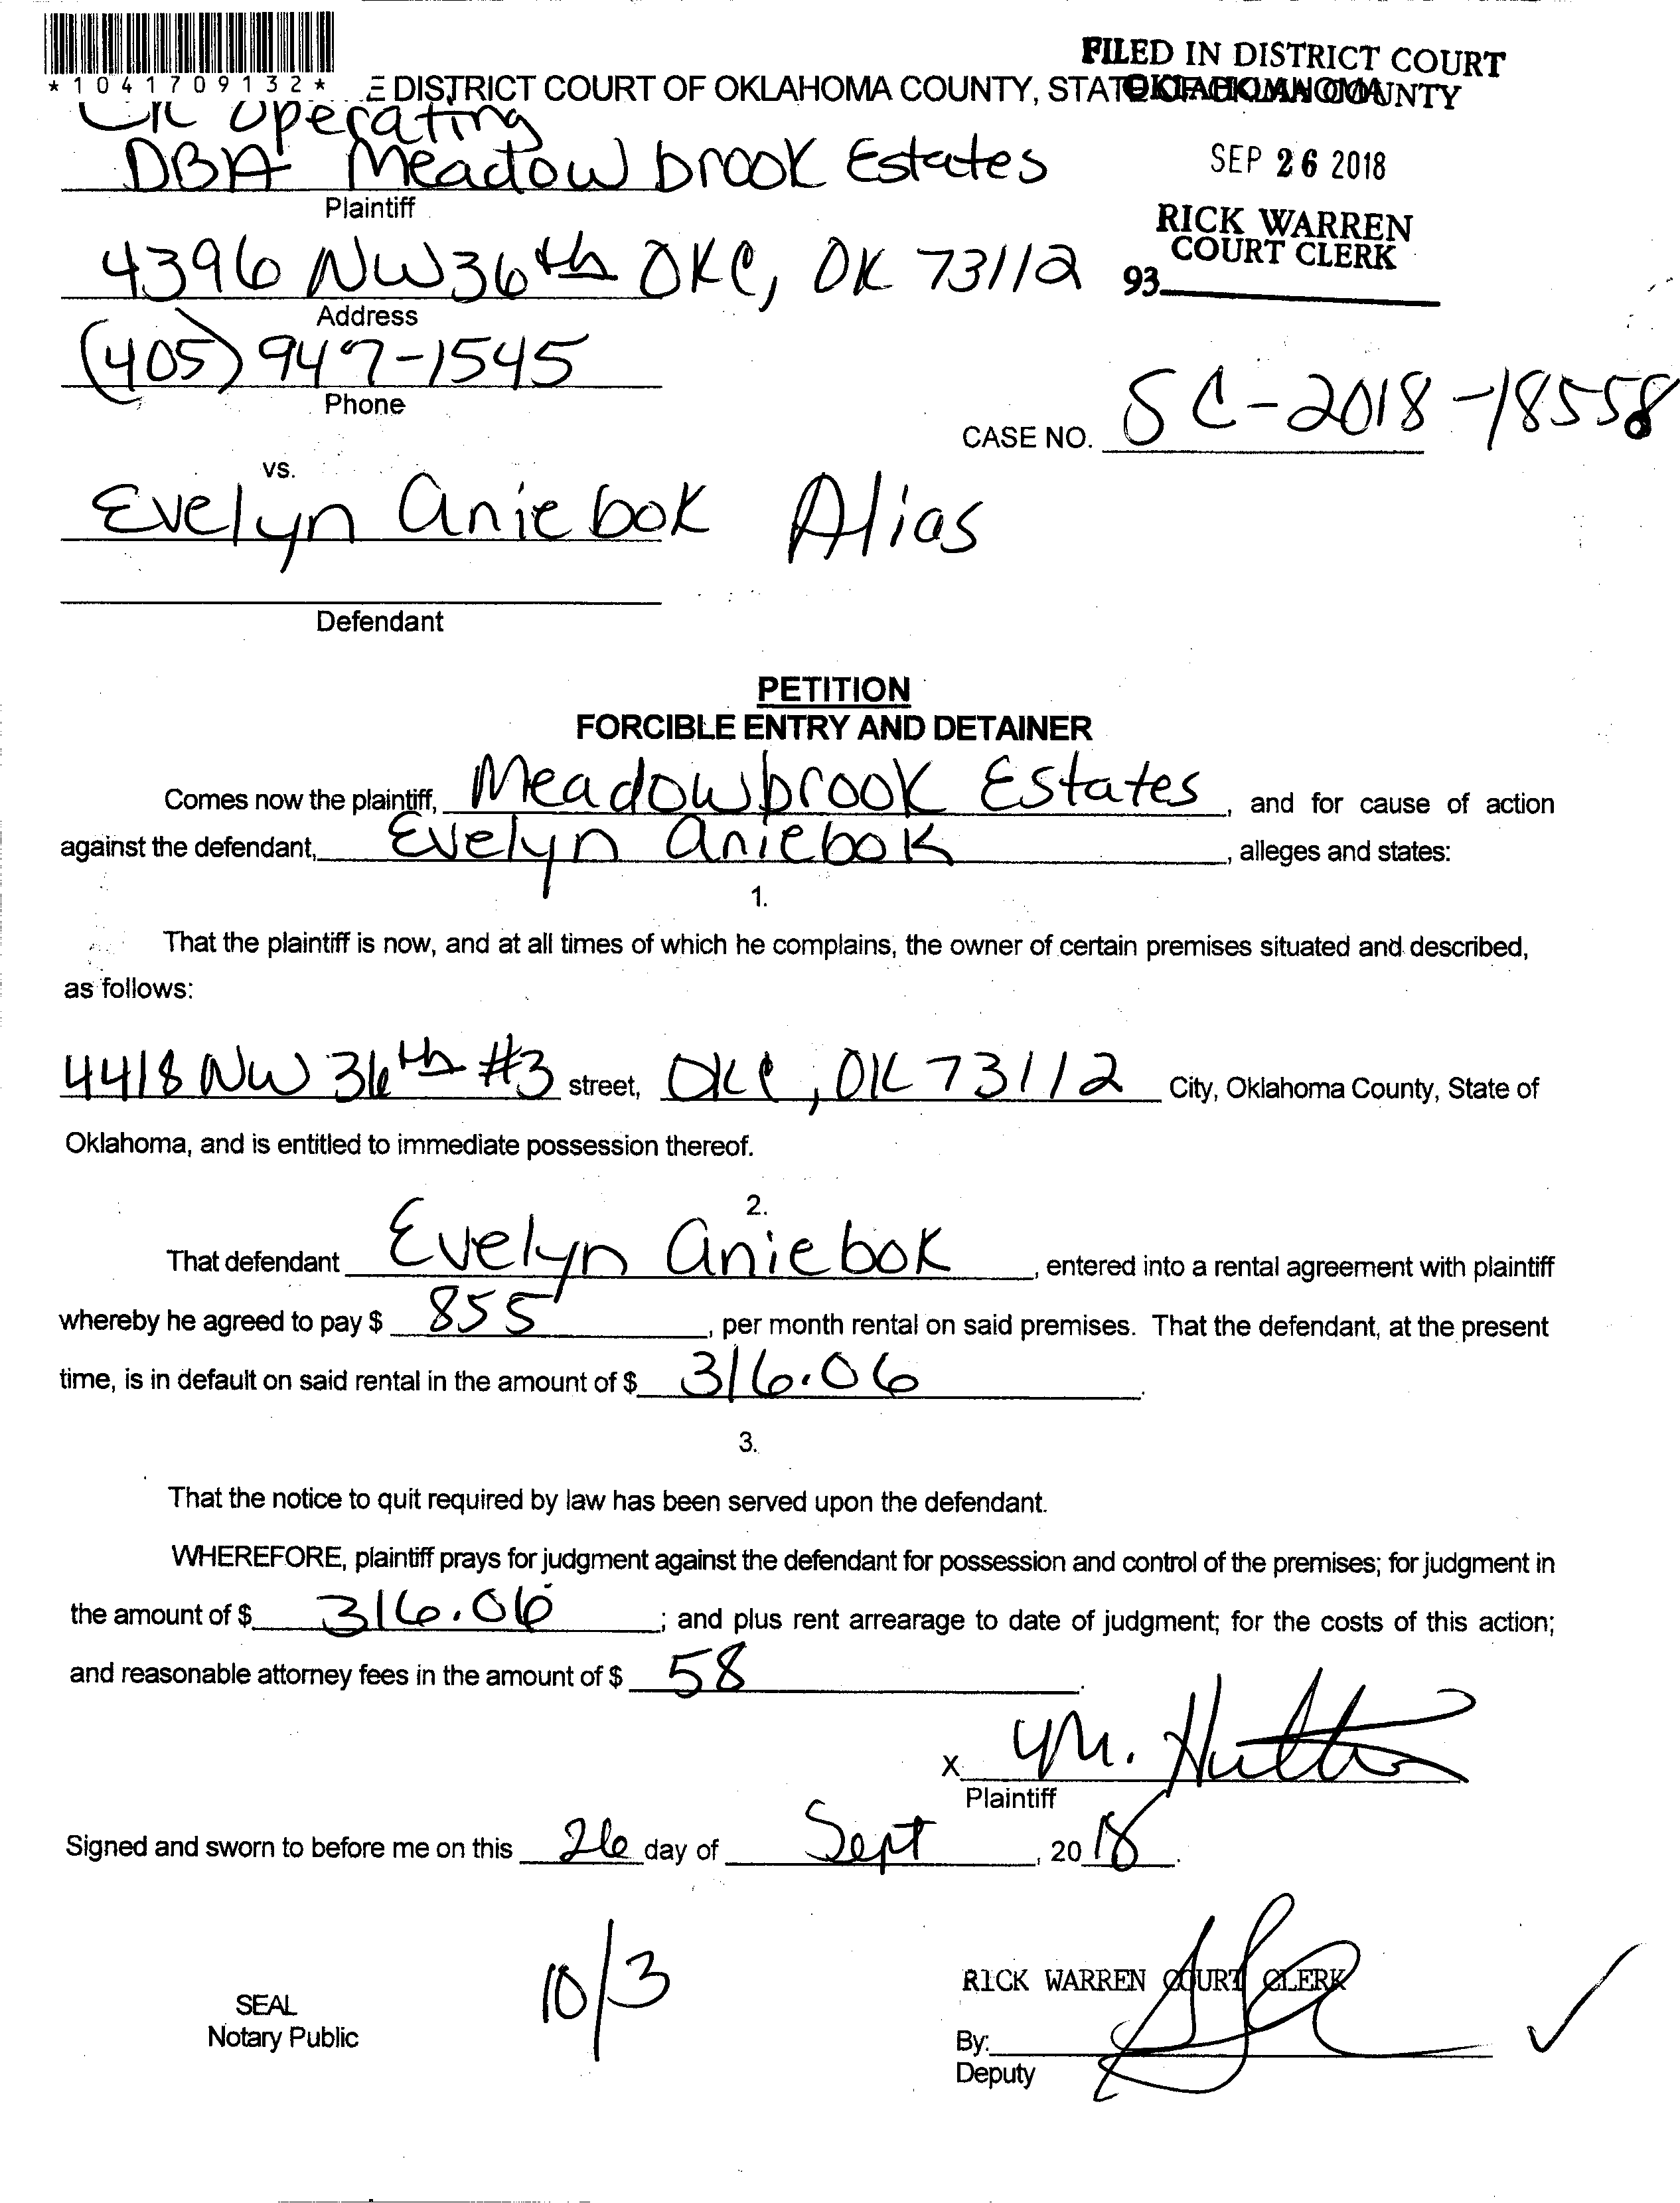 *1041709132*
FILED IN DISTRICT COURT
OKLAHOMA COUNTY
E DISTRICT COURT OF OKLAHOMA COUNTY, STATE OF OKLAHOMA
Operating
DBA Meadowbrook Estates
SEP 26 2018
Plaintiff
RICK WARREN
COURT CLERK
4396 NW 36th OKC, OK 73112
93
Address
(405) 947-1545
Phone
CASE NO. SC-2018-18558
vs.
Evelyn Aniebok Alias
Defendant
PETITION
FORCIBLE ENTRY AND DETAINER
Comes now the plaintiff, Meadowbrook Estates, and for cause of action
against the defendant, Evelyn Aniebok, alleges and states:
1.
That the plaintiff is now, and at all times of which he complains, the owner of certain premises situated and described,
as follows:
4418 NW 36th #3 street, OKC, OK 73112 City, Oklahoma County, State of
Oklahoma, and is entitled to immediate possession thereof.
2.
That defendant Evelyn Aniebok, entered into a rental agreement with plaintiff
whereby he agreed to pay $ 855, per month rental on said premises. That the defendant, at the present
time, is in default on said rental in the amount of $ 316.06.
3.
That the notice to quit required by law has been served upon the defendant.
WHEREFORE, plaintiff prays for judgment against the defendant for possession and control of the premises; for judgment in
the amount of $ 316.06; and plus rent arrearage to date of judgment; for the costs of this action;
and reasonable attorney fees in the amount of $ 58.
X M. Hutton
Plaintiff
Signed and sworn to before me on this 26 day of Sept, 2018.
10/3
RICK WARREN COURT CLERK
SEAL
Notary Public
By:
Deputy